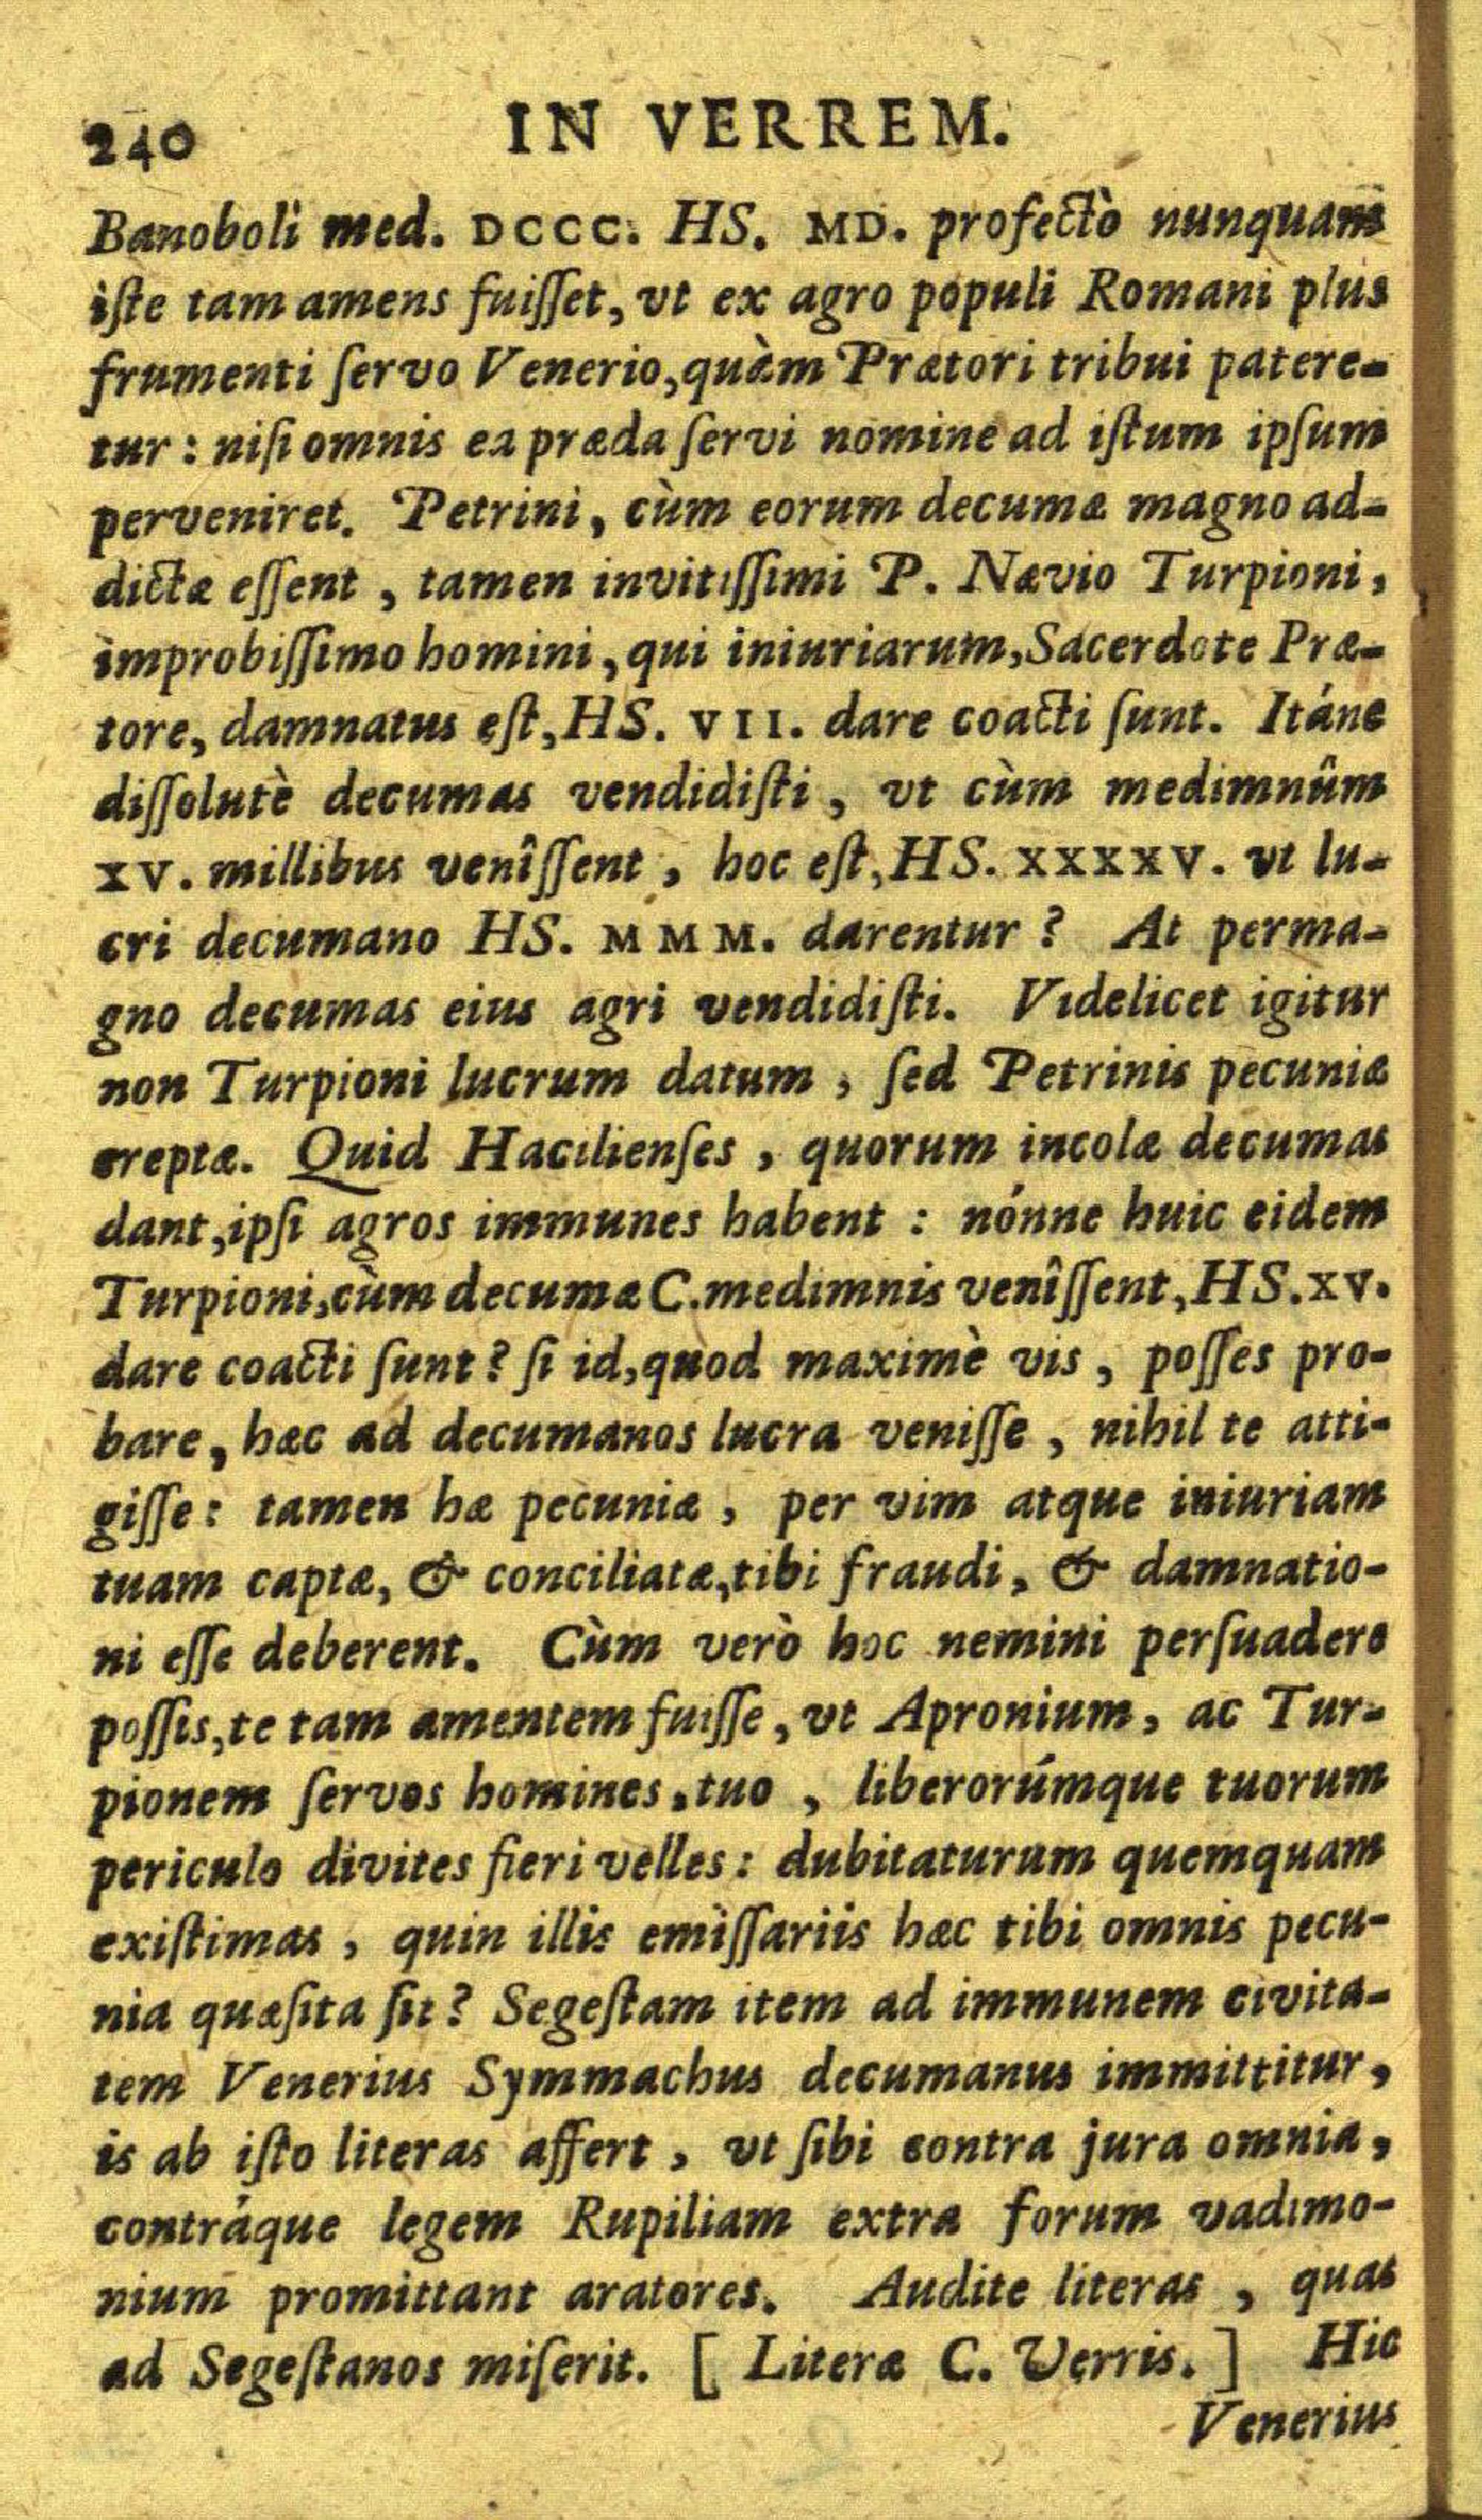 240 IN VERREM.
Banoboli med. DCCC. HS. MD. profectò nunquam
iſte tam amens fuiſſet, vt ex agro populi Romani plus
frumenti ſervo Venerio, quàm Prætori tribui patere-
tur: niſi omnis ea præda ſervi nomine ad iſtum ipſum
perveniret. Petrini, cùm eorum decumæ magno ad-
dictæ eſſent, tamen invitiſſimi P. Nævio Turpioni,
improbiſſimo homini, qui iniuriarum, Sacerdote Præ-
tore, damnatus eſt, HS. VII. dare coacti ſunt. Itáne
diſſolutè decumas vendidiſti, vt cùm medimnûm
XV. millibus venîſſent, hoc eſt, HS. XXXXV. vt lu-
cri decumano HS. MMM. darentur? At perma-
gno decumas eius agri vendidiſti. Videlicet igitur
non Turpioni lucrum datum, ſed Petrinis pecuniæ
ereptæ. Quid Hacilienſes, quorum incolæ decumas
dant, ipſi agros immunes habent: nónne huic eidem
Turpioni, cùm decumæ C. medimnis venîſſent, HS. XV.
dare coacti ſunt? ſi id, quod maximè vis, poſſes pro-
bare, hæc ad decumanos lucra veniſſe, nihil te atti-
giſſe: tamen hæ pecuniæ, per vim atque iniuriam
tuam captæ, & conciliatæ, tibi fraudi, & damnatio-
ni eſſe deberent. Cùm verò hoc nemini perſuadere
poſſis, te tam amentem fuiſſe, vt Apronium, ac Tur-
pionem ſervos homines, tuo, liberorúmque tuorum
periculo divites fieri velles: dubitaturum quemquam
exiſtimas, quin illis emiſſariis hæc tibi omnis pecu-
nia quæſita ſit? Segeſtam item ad immunem civita-
tem Venerius Symmachus decumanus immittitur,
is ab iſto literas affert, vt ſibi contra jura omnia,
contráque legem Rupiliam extra forum vadimo-
nium promittant aratores. Audite literas, quas
ad Segeſtanos miſerit. [ Literæ C. Verris. ] Hic
Venerius